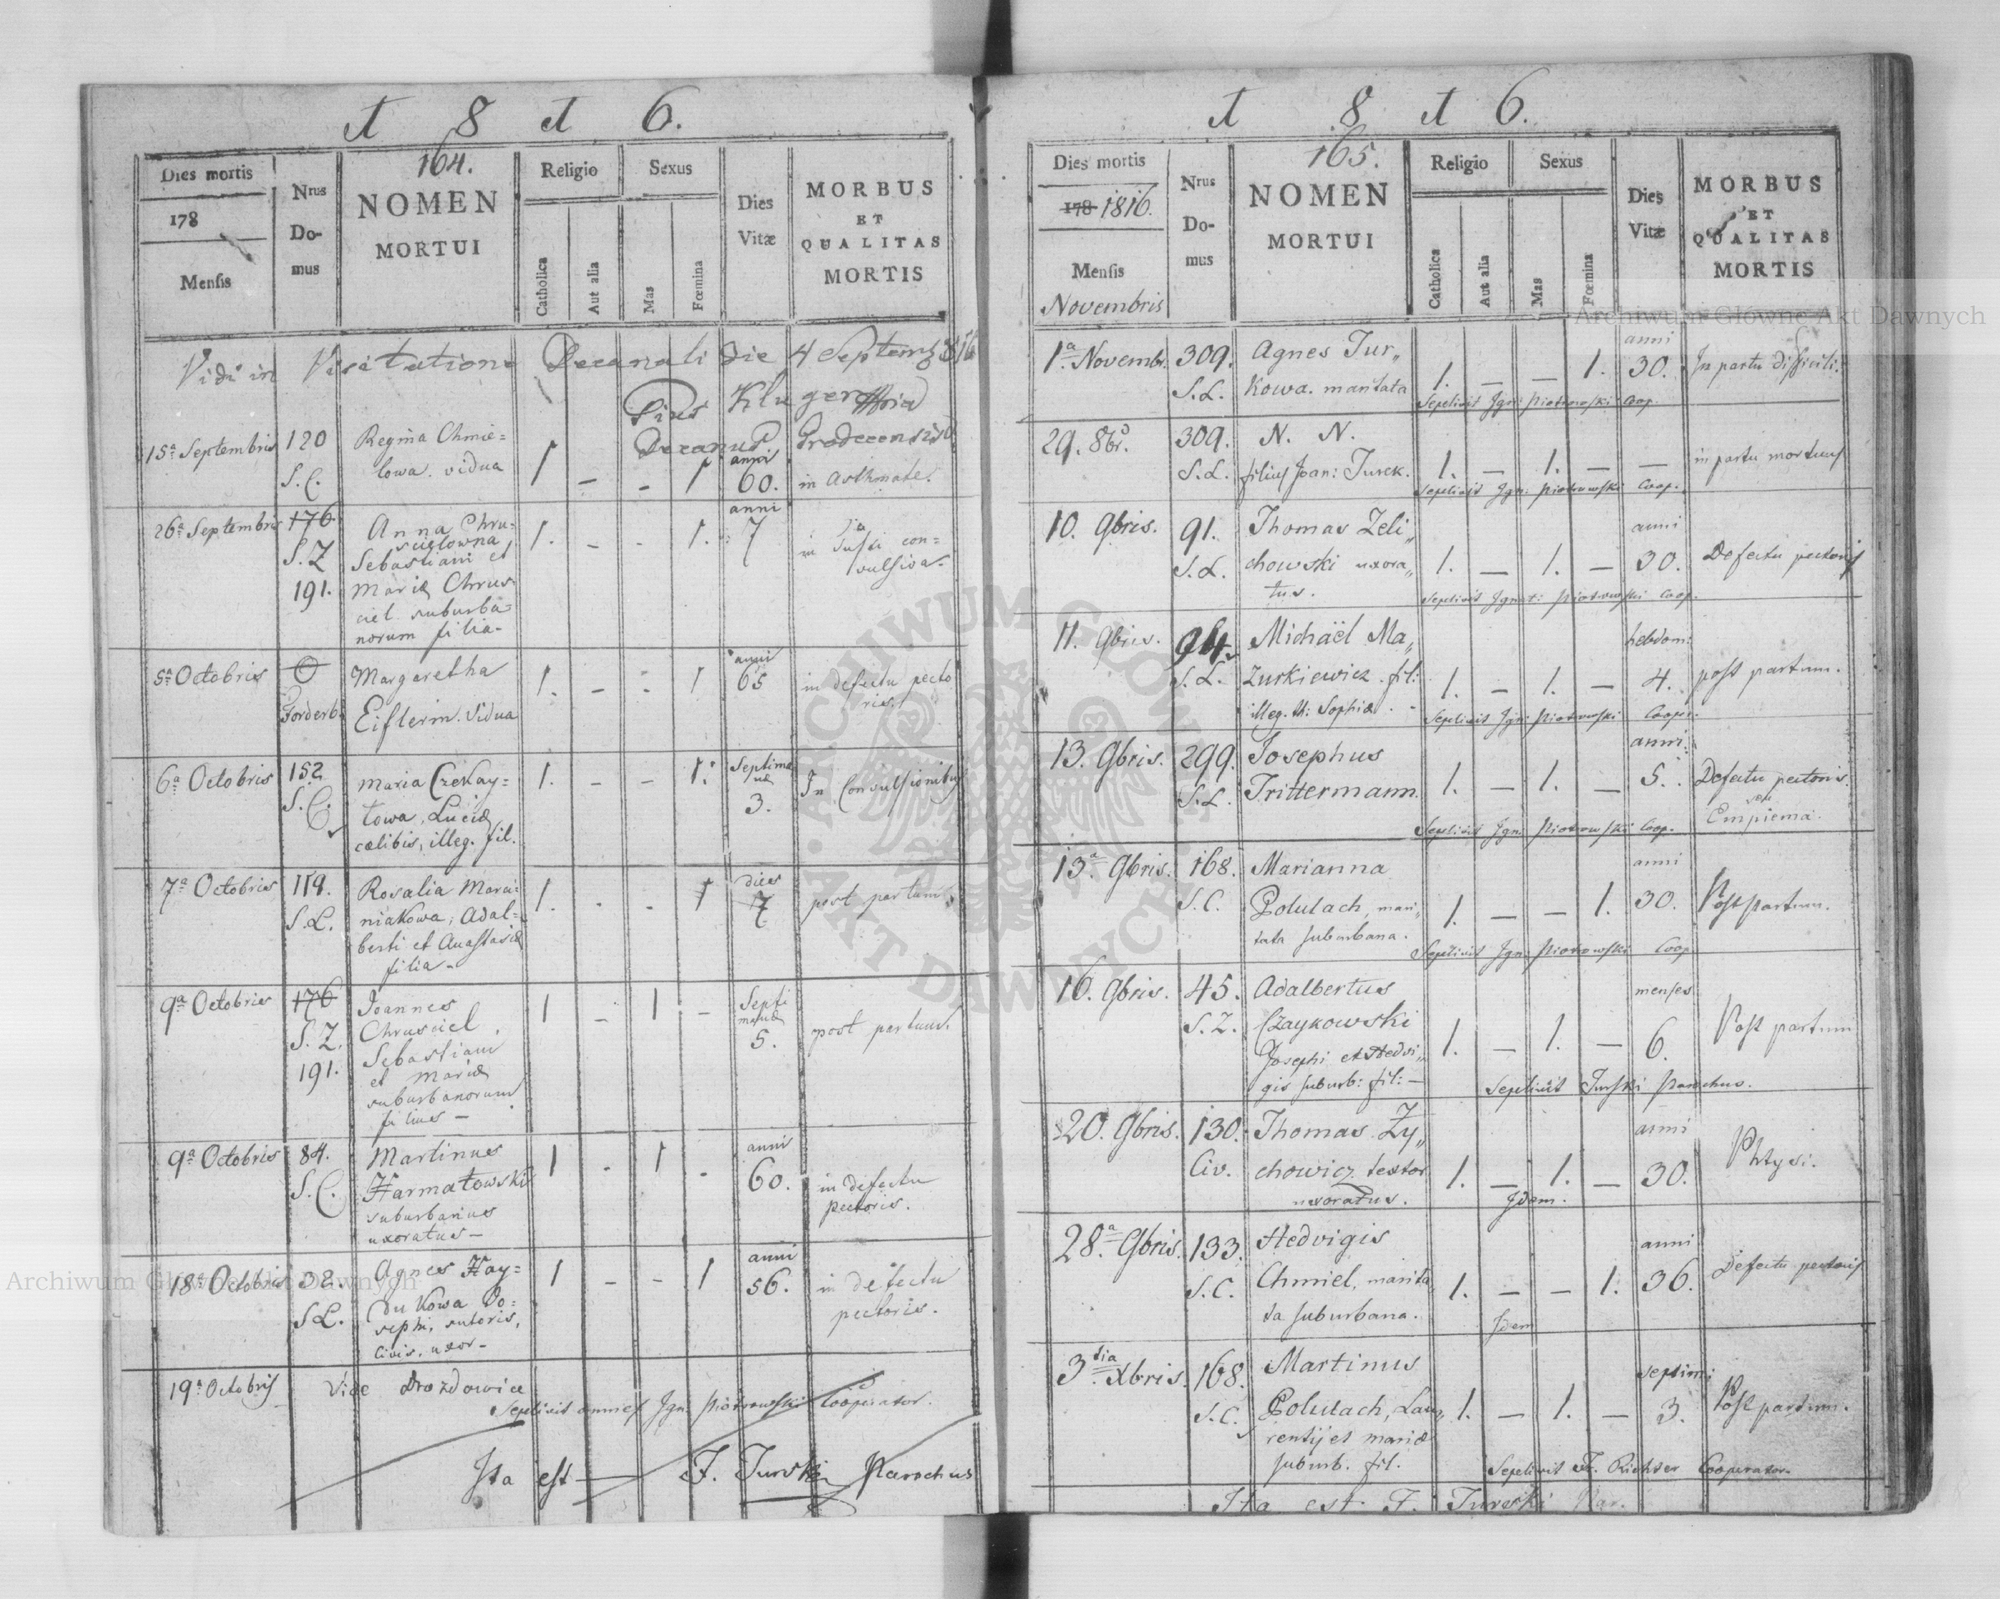 1 8 1 6.
164.
Dies mortis
178
Mensis
Nrus
Do-
mus
NOMEN
MORTUI
Religio
Catholica
Aut alia
Sexus
Mas
Fœmina
Dies
Vitæ
MORBUS
ET
QUALITAS
MORTIS
Vidi in Visitatione Decanali die 4 Septemb 816
Pius Kluger
Decanus Grodecensis
15a Septembris 120 Regina Chmie= 1 - - 1 anni
S.C. lowa. vidua 60. in Asthmate.
26a Septembris 176 Anna Chru= 1. - - 1. anni 7 in Tussi con=
S.Z scielowna vulsiva.
Sebastiani et
191. Mariæ Chrus
ciel suburba=
norum filia-
5a Octobris Margaretha 1. - - 1 anni 65 in defectu pecto
Vorderb. Eiflerin. Vidua ris.
6a Octobris 152 Maria Czekay= 1. - - 1. Septima
næ
S.C. towa, Luciæ 3. In Convulsionibus
cælibis, illeg. fil.
7a Octobris 119. Rosalia Marci= 1. - - 1 dies 7 post partum.
S.L. niakowa, Adal=
berti et Anastasiæ
filia-
9a Octobris 176 Joannes 1 - 1 - Septi
manæ
S.Z. Chrusciel, 5. post partum.
191. Sebastiani
et Mariæ
suburbanorum
filius-
9a Octobris 84. Martinus 1 - 1 - anni
S.C. Harmatowski 60. in defectu
suburbanus pectoris.
uxoratus-
18a Octobris 32. Agnes Hay= 1 - - 1 anni
S.L. dukowa Jo= 56. in defectu
sephi, sutoris, pectoris.
civis, uxor-
19a Octobris Vide Drozdowice
Sepelivit omnes Ign. Piotrowski Cooperator.
Ita est F. Turski Parochus
1 8 1 6.
165.
Dies mortis
178 1816.
Mensis
Novembris
Nrus
Do-
mus
NOMEN
MORTUI
Religio
Catholica
Aut alia
Sexus
Mas
Fœmina
Dies
Vitæ
MORBUS
ET
QUALITAS
MORTIS
1a Novembr. 309. Agnes Tur„ 1. - - 1. anni 30. In partu difficili.
S.L. kowa. maritata
Sepelivit Ign: Piotrowski Coop.
29. 8br. 309. N. N. 1. - 1. - - in partu mortuus
S.L. filius Joan: Turek.
Sepelivit Ign: Piotrowski Coop.
10. 9bris. 91. Thomas Zeli„ 1. - 1. - anni 30. Defectu pectoris
S.L. chowski uxora„
tus.
Sepelivit Ignat: Piotrowski Coop.
11. 9bris. 94. Michaël Ma„ 1. - 1. - hebdom: 4. post partum.
S.L. zurkiewicz. fil:
illeg. th: Sophiæ.
Sepelivit Ign: Piotrowski Coop.
13. 9bris. 299. Josephus 1. - 1. - anni. 5. Defectu pectoris.
S.L. Trittermann. seu
Empiema.
Sepelivit Ign: Piotrowski Coop.
13a 9bris. 168. Marianna 1. - - 1. anni 30. Post partum.
S.C. Polulach, mari„
tata suburbana.
Sepelivit Ign: Piotrowski Coop
16. 9bris. 45. Adalbertus 1. - 1. - menses 6. Post partum
S.Z. Czaykowski
Josephi et Hedvi„
gis suburb: fil: -
Sepelivit Turski Parochus.
20. 9bris. 130. Thomas Zy„ 1. - 1. - anni 30. Phtysi.
Civ. chowicz textor
uxoratus.
Idem.
28a 9bris. 133. Hedvigis 1. - - 1. anni 36. Defectu pectoris
S.C. Chmiel, marita
ta suburbana.
Idem
3tia Xbris. 168. Martinus 1. - 1. - septim: 3. Post partum.
S.C. Polulach, Lau„
rentij et Mariæ
suburb. fil.
Sepelivit F. Richter Cooperator.
Ita est F. Turski Par.
Archiwum Główne Akt Dawnych
Archiwum Główne Akt Dawnych
ARCHIWUM GŁÓWNE AKT DAWNYCH